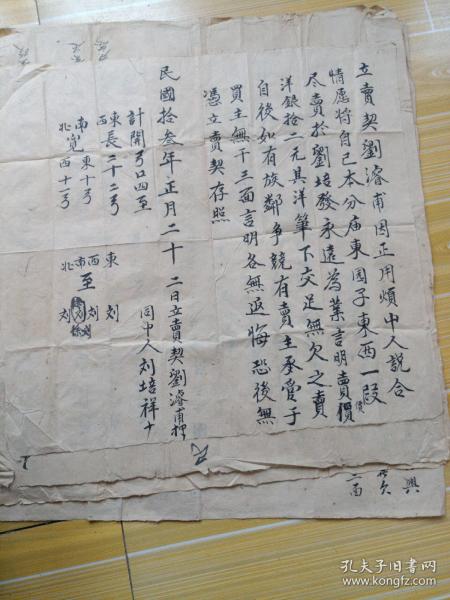 立賣契劉濬甫因正用煩中人説合
情愿将自己本分庙東園子東西一段
尽賣於劉培發永遠為業言明賣價
洋銀拾二元其洋筆下交足無欠之賣
自後如有族鄰争競有賣主承管于
買主無干三面言明各無返悔恐後無
憑立賣契存照
民國拾叁年正月二十二日立賣契劉濬甫押
同中人刘培祥十
計開弓口四至
東西長二十二弓
南北寬東十弓西十一弓
東西南北至
刘
刘
刘
興
孔夫子旧书网
www.kongfz.com